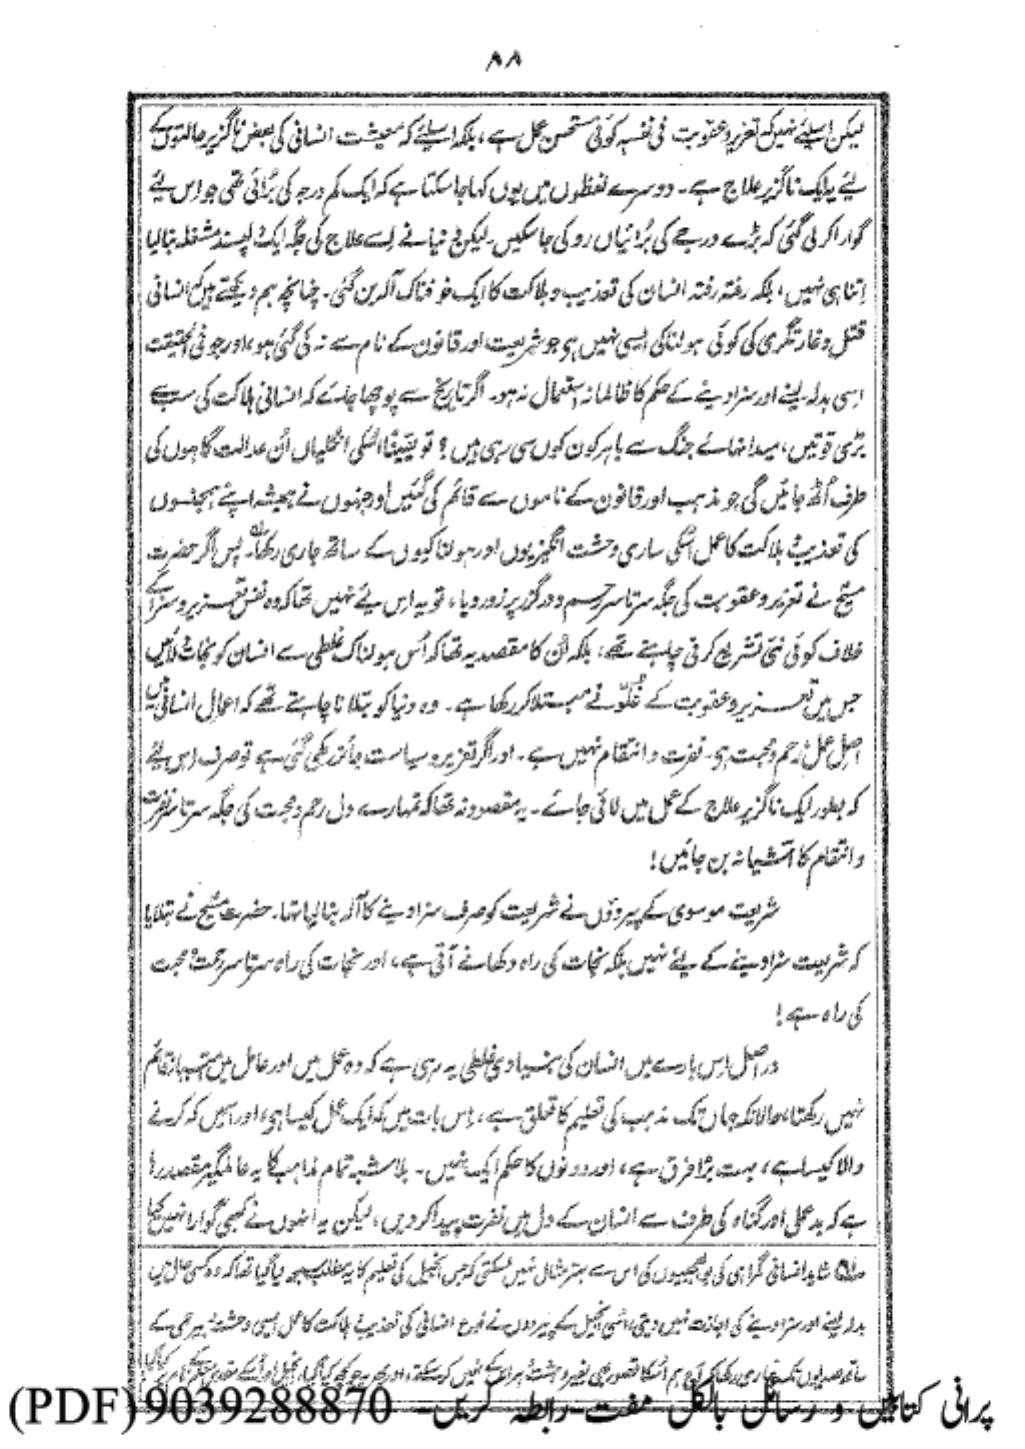 ۸۸
لیکن اسلئے نہیں کہ تعزیر و عقوبت فی نفسہ کوئی مستحسن عمل ہے، بلکہ اسلئے کہ معیشت انسانی کی بعض ناگزیر حالتوں کے
لئے یہ ایک ناگزیر علاج ہے۔ دوسرے لفظوں میں یوں کہا جا سکتا ہے کہ ایک کم درجہ کی برائی تھی جو اس لئے
گوارا کر لی گئی کہ بڑے درجے کی برائیاں روکی جا سکیں۔ لیکن دنیا نے اسے علاج کی جگہ ایک دل پسند مشغلہ بنا لیا
اتنا ہی نہیں، بلکہ رفتہ رفتہ انسان کی تعذیب و ہلاکت کا ایک خوفناک آلہ بن گئی۔ چنانچہ ہم دیکھتے ہیں کہ انسانی
قتل و غارتگری کی کوئی ہولناکی ایسی نہیں ہے جو شریعت اور قانون کے نام سے نہ کی گئی ہو، اور جو فی الحقیقت
اسی بدلہ لینے اور سزا دینے کے حکم کا ظالمانہ استعمال نہ ہو۔ اگر تاریخ سے پوچھا جائے کہ انسانی ہلاکت کی سب سے
بڑی قوتیں، میدانہائے جنگ سے باہر کون کون سی رہی ہیں؟ تو یقیناً اسکی انگلیاں اُن عدالت گاہوں کی
طرف اُٹھ جائیں گی جو مذہب اور قانون کے ناموں سے قائم کی گئیں اور جنہوں نے ہمیشہ اپنے ہمجنسوں
کی تعذیب و ہلاکت کا عمل اسکی ساری وحشت انگیزیوں اور ہولناکیوں کے ساتھ جاری رکھا۔ پس اگر حضرت
مسیح نے تعزیر و عقوبت کی جگہ سرتاسر رحم و درگزر پر زور دیا، تو یہ اس لیے نہیں تھا کہ وہ نفس تعزیر و سزا کے
خلاف کوئی نئی تشریع کرنی چاہتے تھے، بلکہ اُن کا مقصد یہ تھا کہ اُس ہولناک غلطی سے انسان کو نجات دلائیں
جس میں تعزیر و عقوبت کے غلوّ نے مبتلا کر رکھا ہے۔ وہ دنیا کو بتلانا چاہتے تھے کہ اعمال انسانی میں
اصل عمل رحم و محبت ہے۔ نفرت و انتقام نہیں ہے۔ اور اگر تعزیر و سیاست جائز رکھی گئی ہے تو صرف اس لئے
کہ بطور ایک ناگزیر علاج کے عمل میں لائی جائے۔ یہ مقصود نہ تھا کہ تمہارے دل رحم و محبت کی جگہ سرتاسر نفرت
و انتقام کا آشیانہ بن جائیں!
شریعت موسوی کے پیرووں نے شریعت کو صرف سزا دینے کا آلہ بنا لیا تھا۔ حضرت مسیح نے بتلایا
کہ شریعت سزا دینے کے لئے نہیں بلکہ نجات کی راہ دکھانے آتی ہے، اور نجات کی راہ سرتاسر رحمت و محبت
کی راہ ہے!
دراصل اس بارے میں انسان کی بنیادی غلطی یہ رہی ہے کہ وہ عمل میں اور عامل میں امتیاز قائم
نہیں رکھتا، حالانکہ جہاں تک مذہب کی تعلیم کا تعلق ہے، اس بات میں کہ ایک عمل کیسا ہے، اور اسمیں کہ کرنے
والا کیسا ہے، بہت بڑا فرق ہے، اور دونوں کا حکم ایک نہیں۔ بلا شبہ تمام مذاہب کا یہ عالمگیر مقصد رہا
ہے کہ بدعملی اور گناہ کی طرف سے انسان کے دل میں نفرت پیدا کر دیں، لیکن یہ انہوں نے کبھی گوارا نہیں کیا
شاید انسانی گمراہی کی بوالعجبیوں کی اس سے بہتر مثال نہیں مل سکتی کہ جس انجیل کی تعلیم کا یہ مطلب سمجھ لیا گیا تھا کہ وہ کسی حال میں
بدلہ لینے اور سزا دینے کی اجازت نہیں دیتی، اُسی انجیل کے پیرووں نے نوع انسانی کی تعذیب و ہلاکت کا عمل ایسی وحشت و بیرحمی کے
ساتھ صدیوں تک جاری رکھا کہ آج ہم اُسکا تصور بھی بغیر وحشت و ہراس کے نہیں کر سکتے، اور پھر یہ جو کچھ کیا گیا، انجیل اور اُسکے مقدس معلم کے نام پر کیا گیا
پرانی کتابیں و رسائل بالکل مفت رابطہ کریں۔ 9039288870 (PDF)